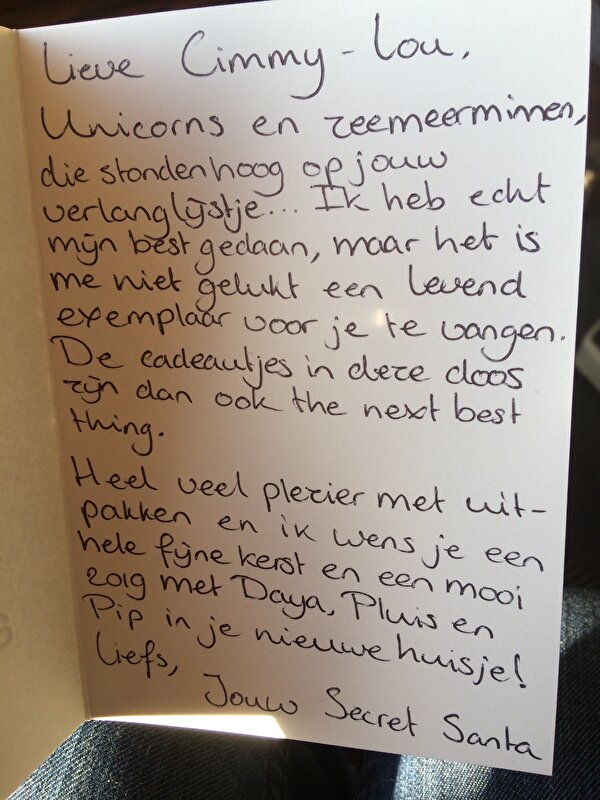 Lieve Cimmy-Lou,
Unicorns en zeemeerminnen,
die stonden hoog op jouw
verlanglijstje... Ik heb echt
mijn best gedaan, maar het is
me niet gelukt een levend
exemplaar voor je te vangen.
De cadeautjes in deze doos
zijn dan ook the next best
thing.
Heel veel plezier met uit-
pakken en ik wens je een
hele fijne kerst en een mooi
2019 met Daya, Pluis en
Pip in je nieuwe huisje!
Liefs,
Jouw Secret Santa